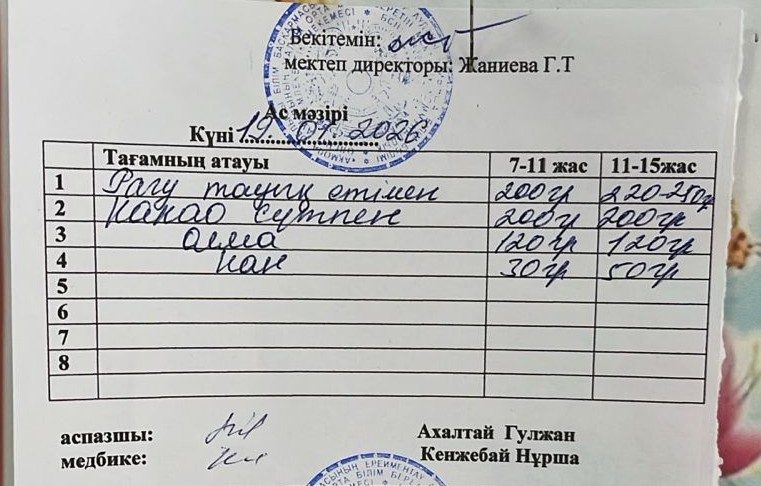 Бекітемін:
мектеп директоры: Жаниева Г.Т
Ас мәзірі
Күні 19.01.2026
Тағамның атауы 7-11 жас 11-15жас
1 Рагу тауық етімен 200гр 220-250гр
2 Какао сүтпен 200гр 200гр
3 алма 120гр 120гр
4 нан 30гр 50гр
5
6
7
8
аспазшы: Ахалтай Гулжан
медбике: Кенжебай Нұрша